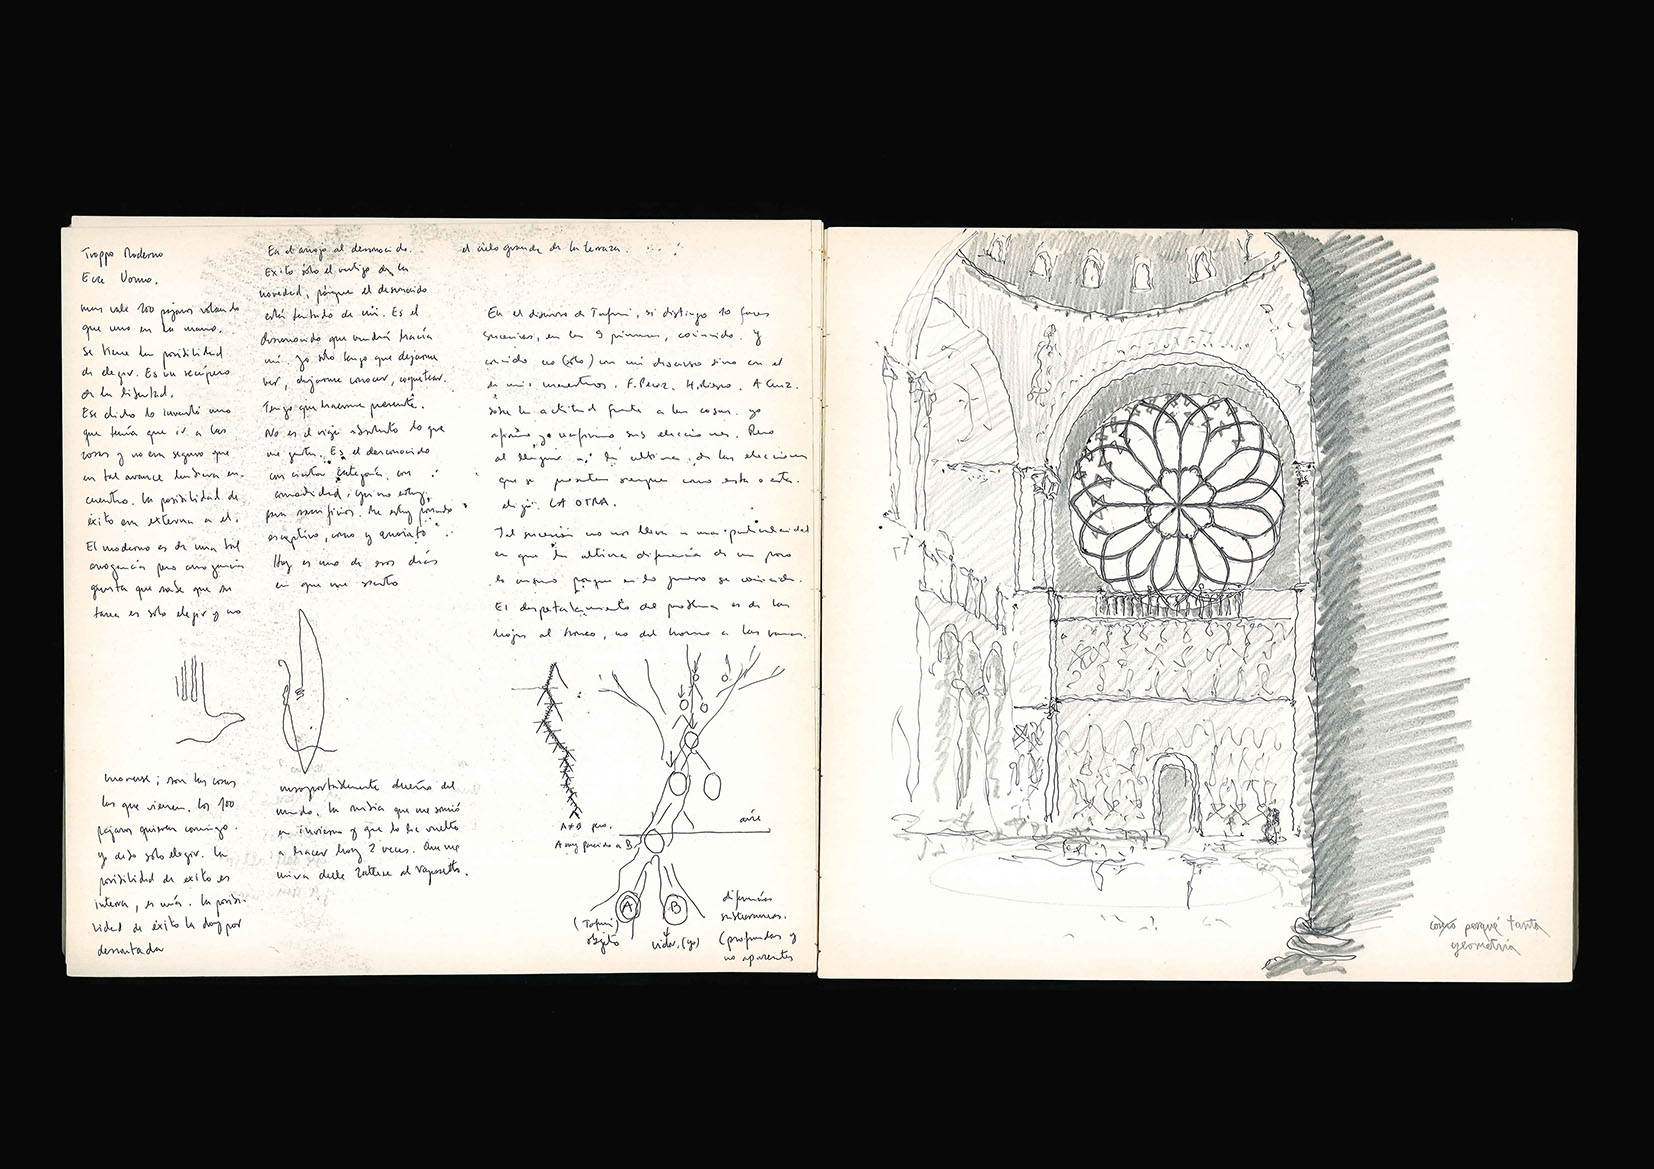 Troppo Moderno
Ecce Uomo.
mas vale 100 pájaros volando
que uno en la mano.
se tiene la posibilidad
de elegir. Es un recupero
de la libertad.
Ese dicho lo inventó uno
que tenía que ir a las
cosas y no era seguro que
en tal avance hubiera en-
cuentro. La posibilidad de
éxito era externa a el.
El moderno es de una tal
arrogancia pero arrogancia
que sabe que su
tarea es solo elegir y no
moverse; son las cosas
las que vienen. Los 100
pájaros quieren conmigo
yo debo solo elegir. La
posibilidad de exito es
interna, es mía. La posibi-
lidad de éxito la doy por
descontada
En el arrojo al desconocido.
Exito sólo el vertigo de la
novedad, porque el desconocido
está tentado de mi. Es el
desconocido que vendrá hacia
mi. yo sólo tengo que dejarme
ver, dejarme conocer, coquetear.
Tengo que hacerme presente.
No es el viaje absoluto lo que
me gusta. Es el desconocido
con cierta categoría, con
comodidad, que no estoy
para sacrificios. Me estoy poniendo
esceptico, como y
Hoy es uno de esos días
en que me siento
insoportablemente dueño del
mundo. la misma que me sonrió
en invierno y que lo ha vuelto
a hacer hoy 2 veces. Aun me
mira desde Zattere al vaporetto.
el cielo grande de la terraza.
En el discurso de Tafuri, si distingo 10 fases
sucesivas, en las 9 primeras, coincido. Y
coincido no (solo) con mi discurso sino con el
de mis maestros. F. Perez. H. A Cruz.
sobre la actitud frente a las cosas. yo
afirmo, yo reafirmo sus elecciones. Pero
al llegar a la ultima de las elecciones
que se presentan siempre como esta o esta.
elegí LA OTRA.
Tal sucesión no nos lleva a una particularidad
en que la ultima diferencia da un poco
lo mismo porque en lo grueso se coincide.
El despetalamiento del problema es de las
hojas al tronco, no del tronco a las ramas.
A≠B pero.
A muy parecido a B
aire
A
B
(Tafuri)
objeto
vida. (yo)
diferencias
subterraneas.
(profundas y
no aparentes
como porqué tanta
geometría